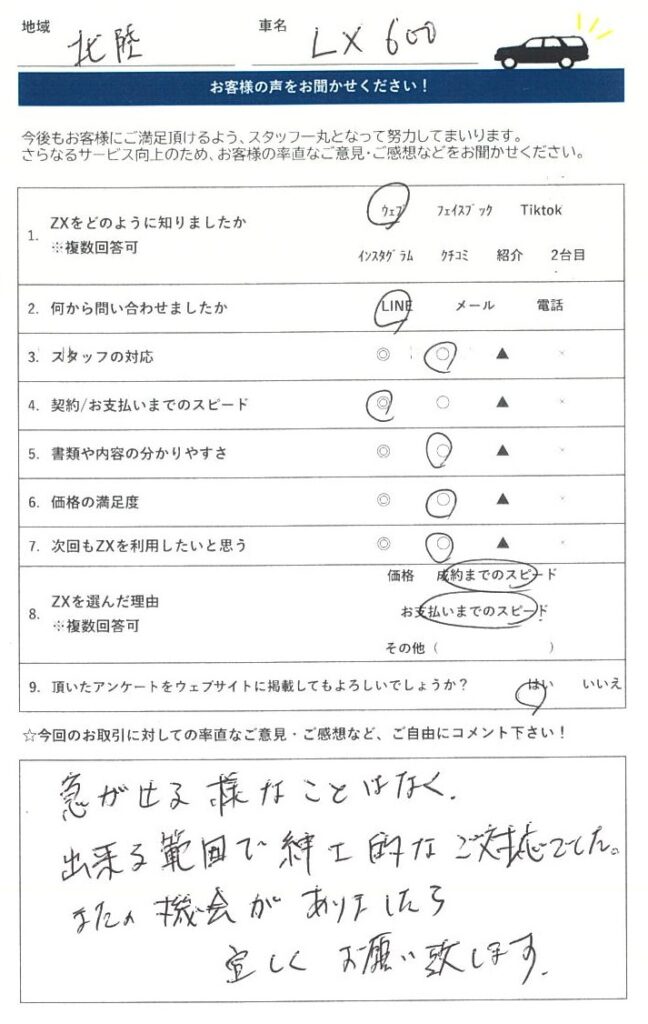 地域 北陸 車名 LX600
お客様の声をお聞かせください！
今後もお客様にご満足頂けるよう、スタッフ一丸となって努力してまいります。
さらなるサービス向上のため、お客様の率直なご意見・ご感想などをお聞かせください。
1. ZXをどのように知りましたか
※複数回答可
ウェブ フェイスブック Tiktok
インスタグラム クチコミ 紹介 2台目
2. 何から問い合わせましたか LINE メール 電話
3. スタッフの対応 ◎ ○ ▲ ×
4. 契約/お支払いまでのスピード ◎ ○ ▲ ×
5. 書類や内容の分かりやすさ ◎ ○ ▲ ×
6. 価格の満足度 ◎ ○ ▲ ×
7. 次回もZXを利用したいと思う ◎ ○ ▲ ×
8. ZXを選んだ理由
※複数回答可
価格 成約までのスピード
お支払いまでのスピード
その他（ ）
9. 頂いたアンケートをウェブサイトに掲載してもよろしいでしょうか？ はい いいえ
☆今回のお取引に対しての率直なご意見・ご感想など、ご自由にコメント下さい！
急がせる様なことはなく、
出来る範囲で紳士的なご対応でした。
またの機会がありましたら
宜しくお願い致します。